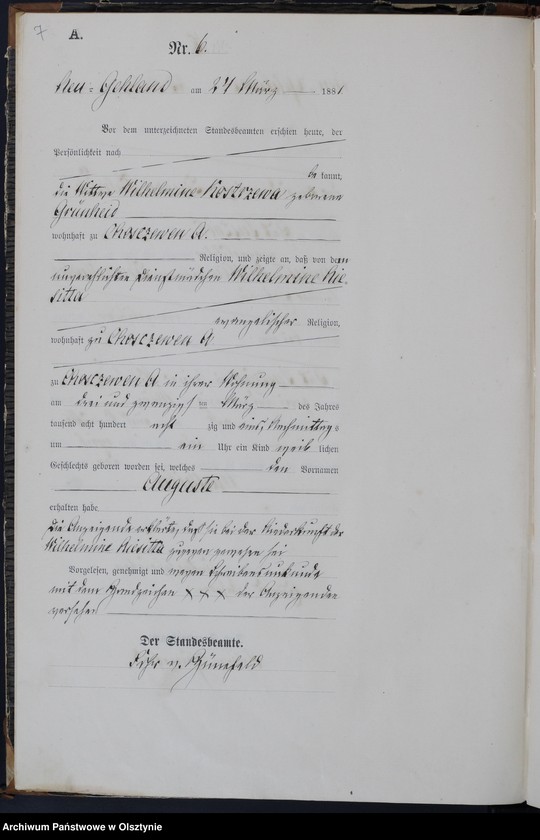 7
A.
Nr. 6.
Neu-Gehland am 24 März 1881
Vor dem unterzeichneten Standesbeamten erschien heute, der
Persönlichkeit nach
be kannt,
die Wittwe Wilhelmine Kostrzewa geborene
Grünheid
wohnhaft zu Choszczewen A.
Religion, und zeigte an, daß von der
unverehelichten Dienstmädchen Wilhelmine
evangelischer Religion,
wohnhaft zu Choszczewen A
zu Choszczewen A in ihrer Wohnung
am drei und zwanzigsten März des Jahres
tausend acht hundert acht zig und eins Nachmittag-
um ein Uhr ein Kind weib lichen
Geschlechts geboren worden sei, welches den Vornamen
Auguste
erhalten habe
Die Anzeigende erklärte, daß sie bei der Niederkunft der
Wilhelmine zugegen gewesen sei
Vorgelesen, genehmigt und wegen Schreibensunkunde
mit dem Handzeichen xxx der Anzeigenden
versehen
Der Standesbeamte.
v.
Archiwum Państwowe w Olsztynie